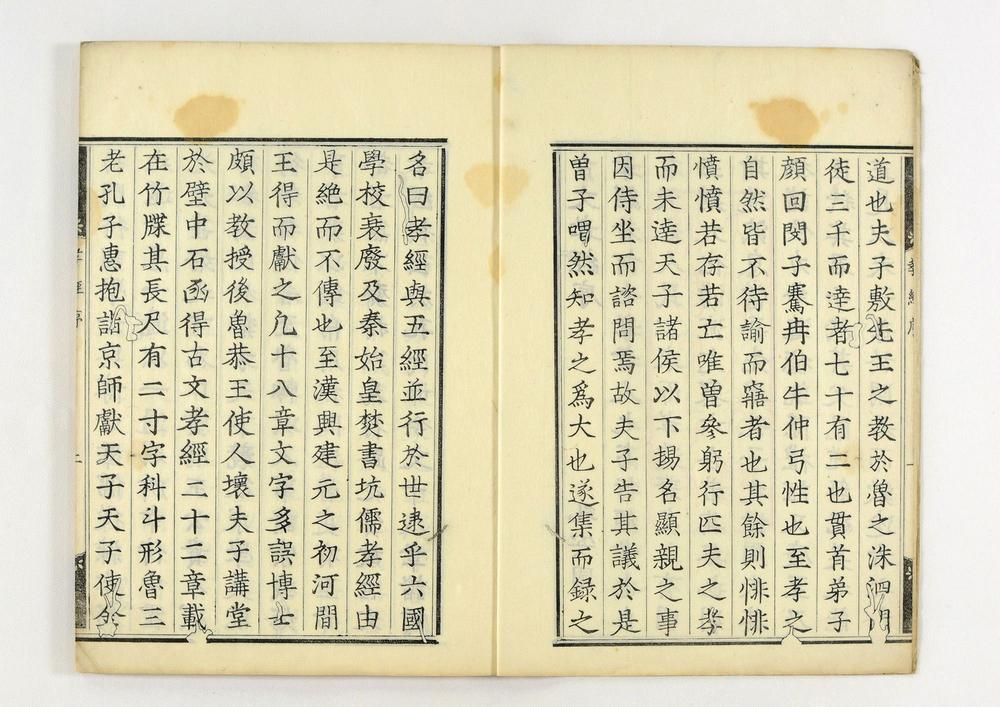 道也夫子敷先王之教於魯之洙泗門
徒三千而達者七十有二也貫首弟子
顔回閔子騫冉伯牛仲弓性也至孝之
自然皆不待諭而寤者也其餘則悱悱
憤憤若存若亡唯曽參躬行匹夫之孝
而未達天子諸侯以下揚名顯親之事
因侍坐而諮問焉故夫子告其議於是
曽子喟然知孝之爲大也遂集而録之
孝經序
名曰孝經與五經並行於世逮乎六國
學校衰廢及秦始皇焚書坑儒孝經由
是絶而不傳也至漢興建元之初河間
王得而獻之凢十八章文字多誤博士
頗以教授後魯恭王使人壞夫子講堂
於壁中石函得古文孝經二十二章載
在竹牒其長尺有二寸字科斗形魯三
老孔子惠抱詣京師獻天子天子使金
孝經序
二